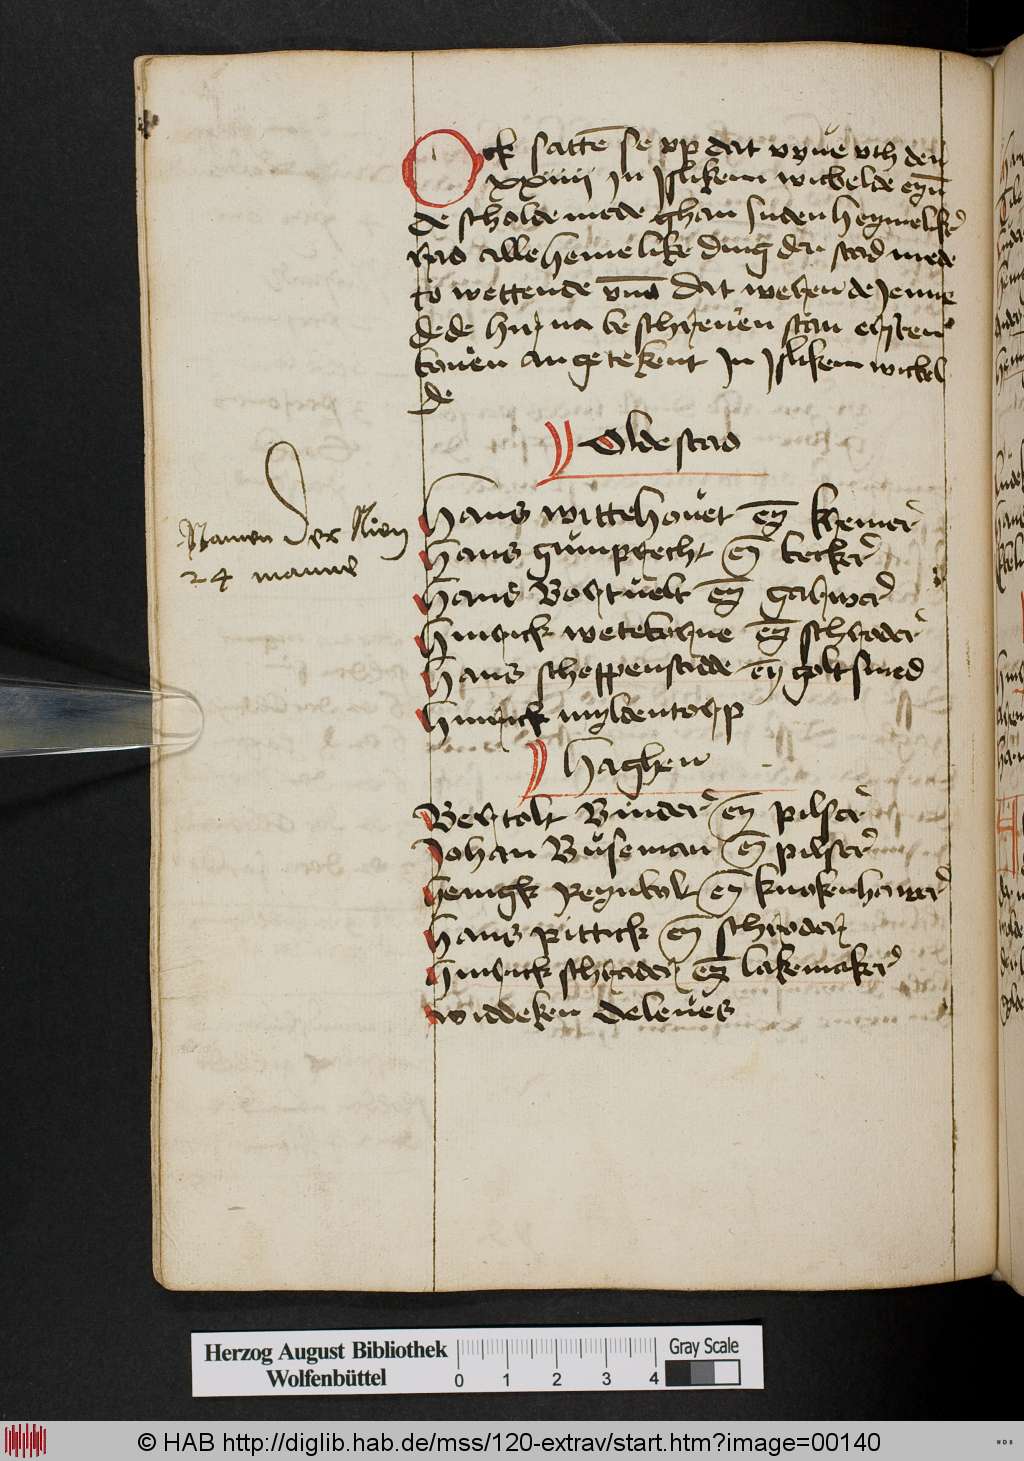 Ock sattē se vp dat vyue vth den
xxiiij in Islikem wicbelde eyn
de scholde mede ghan in den heymeliker
rad alle hemelike ding der stad mede
to wettende vnd dat weren de Jenne
de de hir na beschreuen stan
bouen angetekent in Islikem wicbel
de
Oldestad
Namen der Nien
24 manne
Hans wittehouet eyn kremer
Hans gumprecht eyn becker
Hans Bortuelt eyn garwer
Hinrick wetekorne eyn schrader
Hans scheppenstidde eyn goltsmed
Hinrick myldentorp
Haghen
Bertolt Binder eyn pilser
Johan Buseman eyn pilser
Hennigk Reynbolt eyn knokenhawer
Hans pittick eyn schroder
Hinrick schrader eyn lakemaker
widdeken deleues
Herzog August Bibliothek
Wolfenbüttel
0 1 2 3 4
Gray Scale
© HAB http://diglib.hab.de/mss/120-extrav/start.htm?image=00140